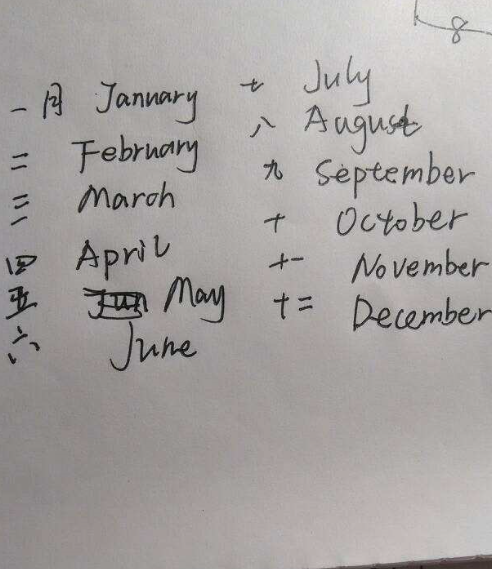 8
一月 January
二 February
三 March
四 April
五 May
六 June
七 July
八 August
九 September
十 October
十一 November
十二 December